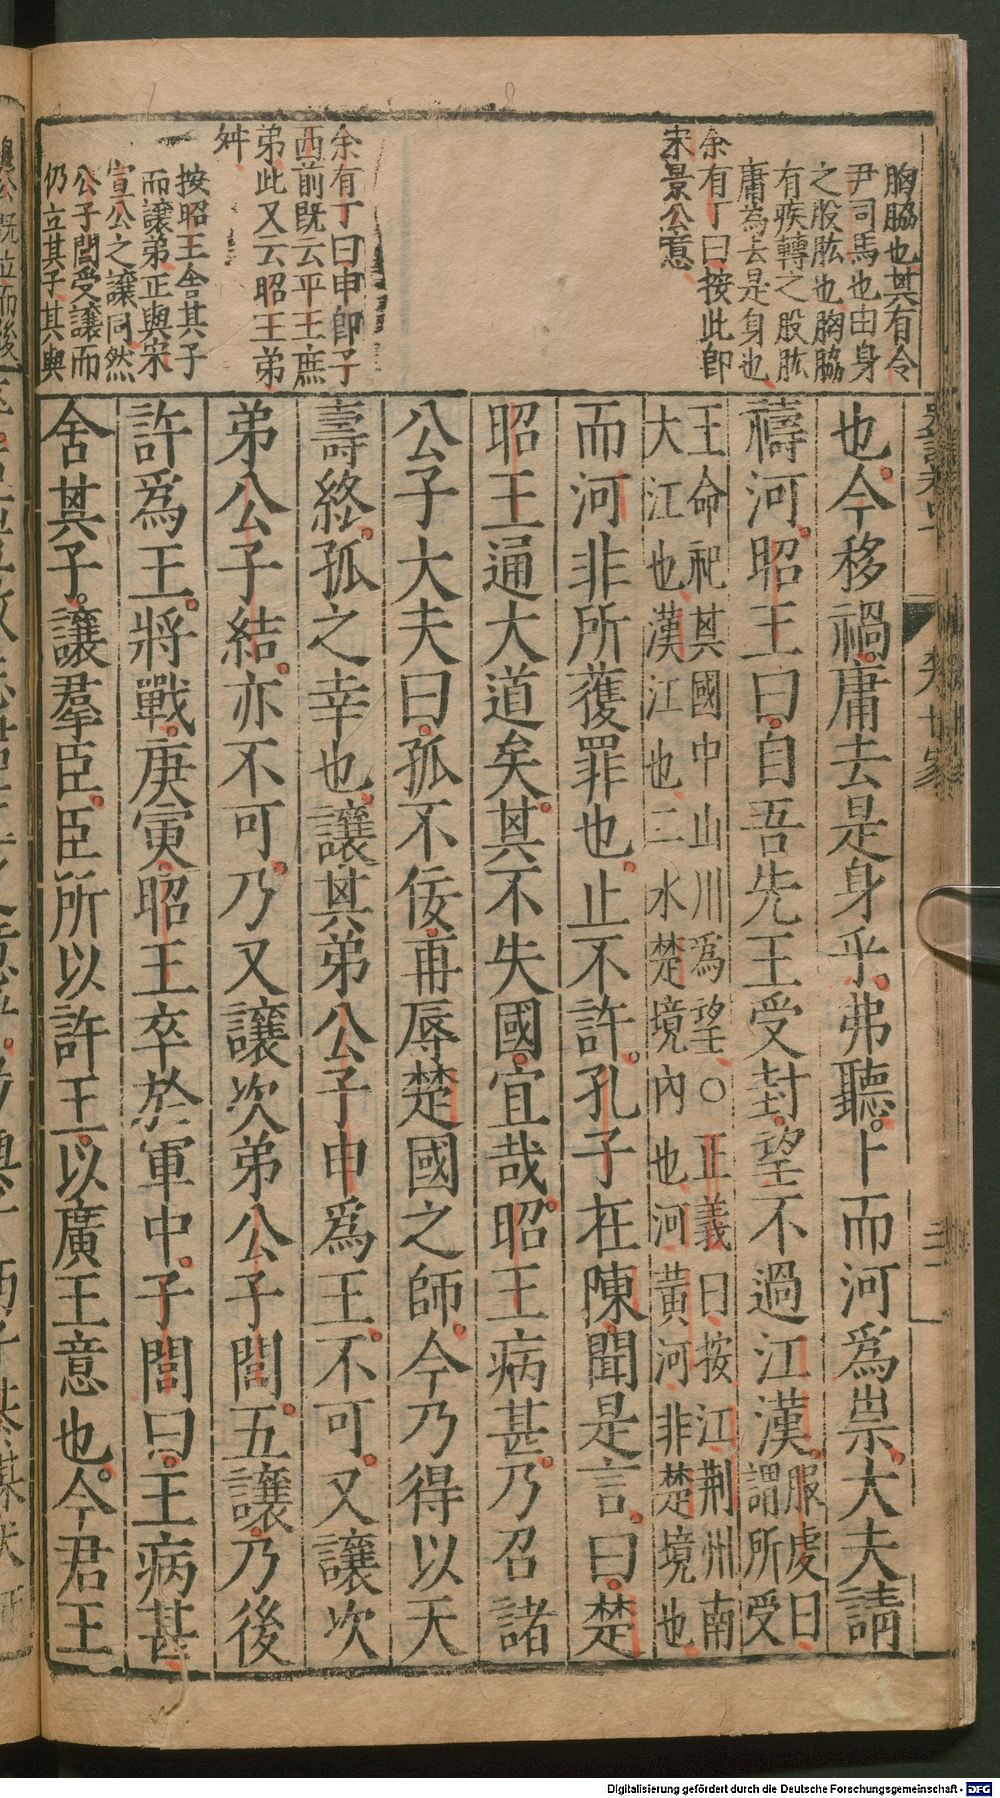 胸脇也其有令
尹司馬也由身
之股肱也胸脇
有疾轉之股肱
庸為去是身也
余有丁曰按此即
宋景公意
余有丁曰申即子
西前既云平王庶
弟此又云昭王弟
舛
按昭王舍其子
而讓弟正與宋
宣公之讓同然
公子閭受讓而
仍立其子其與
也今移禍庸去是身乎弗聽卜而河爲祟大夫請
禱河昭王曰自吾先王受封望不過江漢服虔曰謂所受
王命祀其國中山川爲望○正義曰按江荊州南
大江也漢江也二水楚境內也河黃河非楚境也
而河非所獲罪也止不許孔子在陳聞是言曰楚
昭王通大道矣其不失國宜哉昭王病甚乃召諸
公子大夫曰孤不佞再辱楚國之師今乃得以天
壽終孤之幸也讓其弟公子申爲王不可又讓次
弟公子結亦不可乃又讓次弟公子閭五讓乃後
許爲王將戰庚寅昭王卒於軍中子閭曰王病甚
舍其子讓羣臣臣所以許王以廣王意也今君王
Digitalisierung gefördert durch die Deutsche Forschungsgemeinschaft - DFG